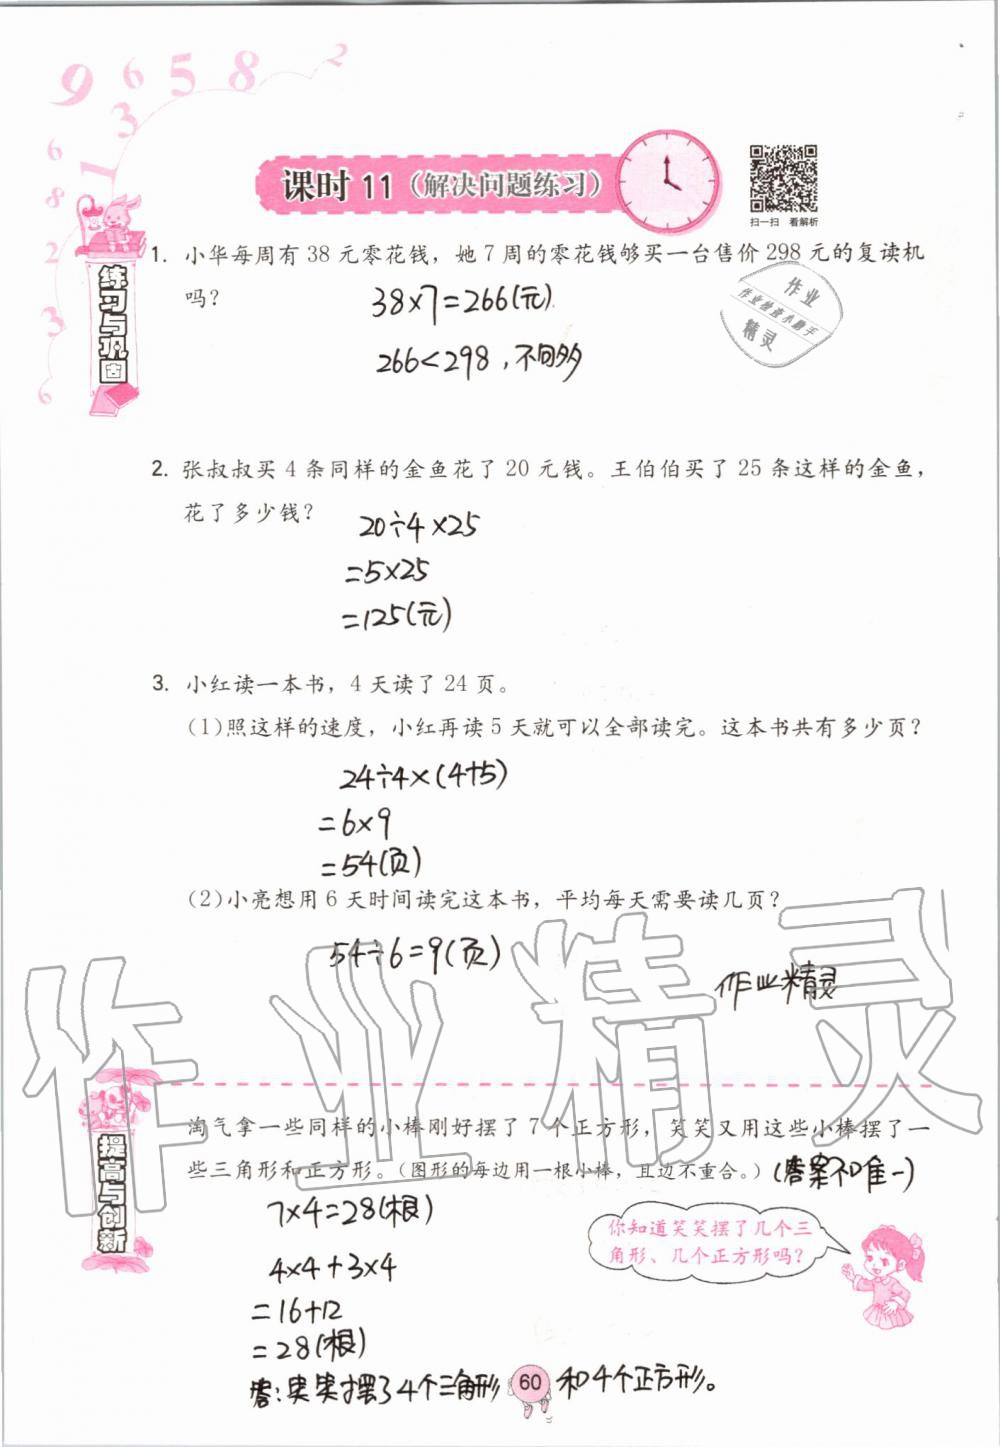 9 6 5 8 2
3
1
6
8
2
3
6
课时 11（解决问题练习）
扫一扫 看解析
练习与巩固
1. 小华每周有 38 元零花钱，她 7 周的零花钱够买一台售价 298 元的复读机
吗？
38×7=266(元)
作业
作业检查小助手
精灵
266<298，不同多
2. 张叔叔买 4 条同样的金鱼花了 20 元钱。王伯伯买了 25 条这样的金鱼，
花了多少钱？
20÷4×25
=5×25
=125(元)
3. 小红读一本书，4 天读了 24 页。
(1)照这样的速度，小红再读 5 天就可以全部读完。这本书共有多少页？
24÷4×(4+5)
=6×9
=54(页)
(2)小亮想用 6 天时间读完这本书，平均每天需要读几页？
54÷6=9(页)
作业精灵
作业精灵
提高与创新
淘气拿一些同样的小棒刚好摆了 7 个正方形，笑笑又用这些小棒摆了一
些三角形和正方形。（图形的每边用一根小棒，且边不重合。）(答案不唯一)
7×4=28(根)
你知道笑笑摆了几个三
角形、几个正方形吗？
4×4+3×4
=16+12
=28(根)
答:笑笑摆了4个三角形和4个正方形。
60